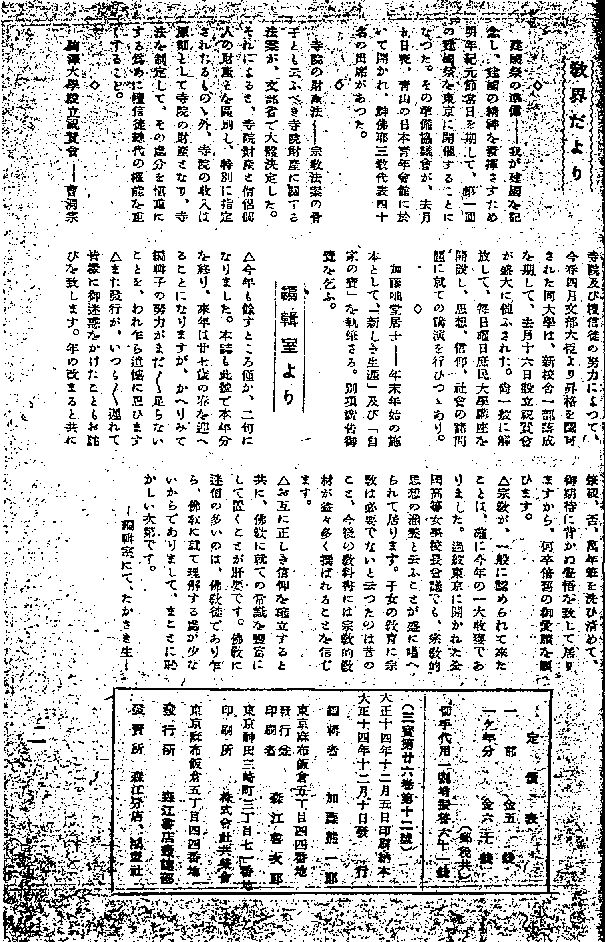 敎界だより
建國祭の準備――我が建國を記
念し、建國の精神を發揮さすため
明年紀元節當日を期して、第一回
の建國祭を東京に開催することに
なつた。その準備協議會が、去月
九日夜、青山の日本青年會館に於
いて開かれ、神佛耶三敎代表四十
名の出席があつた。
◇
寺院の財産法――宗敎法案の骨
子とも云ふべき寺院財産に關する
法案が、文部省で大體決定した。
それによると、寺院財産と僧侶個
人の財産とを區別し、特別に指定
されたものゝ外、寺院の收入は
原則として寺院の財産となり、寺
法を制定して、その處分を愼重に
する爲めに檀信徒總代の權能を重
くすること。
◇
駒澤大學設立祝賀會――曹洞宗
寺院及び檀信徒の努力によつて、
今春四月文部大臣より昇格を認可
された同大學は、新校舍一部落成
を期して、去月十六日設立祝賀會
が盛大に催ふされた。尙一般に解
放して、每日曜日庶民大學講座を
開設し、思想、信仰、社會の諸問
題に就ての講演を行ひつゝあり。
◇
加藤咄堂居士――年末年始の施
本として、「新しき生活」及び「自
家の寶」を執筆さる。別項廣吿御
覽を乞ふ。
編輯室より
△今年も餘すところ僅か、二旬に
なりました。本誌も此號で本年分
を終り、來年は廿七歲の春を迎へ
ることになりますが、かへりみて
編輯子の努力がまだ〱足らない
ことを、われ乍ら遺憾に思ひます
△また發行が、いつも〱遲れて
皆樣に御迷惑をかけたこともお詫
びを致します。年の改まると共に
禿硯、否、萬年筆を洗ひ淸めて、
御期待に背かぬ覺悟を致して居り
ますから、何卒倍舊の御愛顧を願
ひます。
△宗敎が、一般に認められて來た
ことは、確に今年の一大收穫であ
りました。過般東京に開かれた全
國高等女學校長會議でも、宗敎的
思想の涵養と云ふことが盛に唱へ
られて居ります。子女の敎育に宗
敎は必要でないと云つたのは昔の
こと、今後の敎科書には宗敎的敎
材が益々多く選ばれることを信じ
ます。
△お互に正しき信仰を確立すると
共に、佛敎に就ての常識を豐富に
して置くことが肝要です。佛敎に
迷信の多いのは、佛敎徒であり乍
ら、佛敎に就て理解する處が少な
いからでありまして、まことに恥
かしい次第です。
―編輯室にて、たかさき生―
定價表
一部 金五錢
一ケ年分 金六十錢
(郵稅共)
切手代用一割增振替六十一錢
(三寶第廿六卷第十二號)
大正十四年十二月五日印刷納本
大正十四年十二月十日發行
編輯者 加藤熊一郎
東京麻布飯倉五丁目四四番地
發行兼印刷名 森江
東京神田三崎町三丁目七一番地
印刷所 株式會社共榮舍
東京麻布飯倉五丁目四四番地
發行所 森江書店
發賣所 森江分店、鴻盟社
二